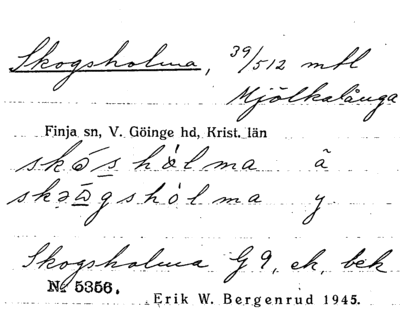 Skogsholma, 39/512 mtl
Mjölkalånga
Finja sn, V. Göinge hd, Krist. län
skǫ́s hòlma ä
skəǫ̀gshólma y
Skogsholma G 9, ek, bek
№ 5356.
Erik W. Bergenrud 1945.